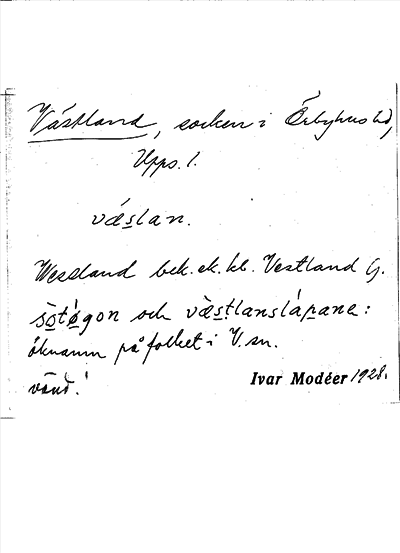 Västland, socken i Örbyhus hd,
Upps. l.
væslan.
Wessland bek. ek. kl. Vestland G.
sotøgon och væstlanslápana:
öknamn på folket i V. sn.
vänd!
Ivar Modéer 1928.